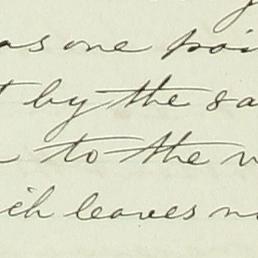 as one poi
t by the sa
to the w
ich leaves no